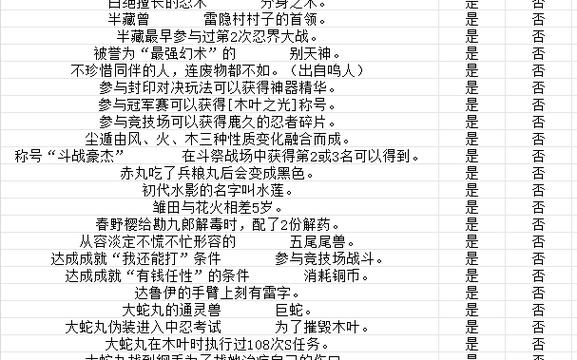 白绝擅长的忍术 分身之术。 是 否
半藏曾 雷隐村村子的首领。 是 否
半藏最早参与过第2次忍界大战。 是 否
被誉为“最强幻术”的 别天神。 是 否
不珍惜同伴的人，连废物都不如。（出自鸣人） 是 否
参与封印对决玩法可以获得神器精华。 是 否
参与冠军赛可以获得[木叶之光]称号。 是 否
参与竞技场可以获得鹿久的忍者碎片。 是 否
尘遁由风、火、木三种性质变化融合而成。 是 否
称号“斗战豪杰” 在斗祭战场中获得第2或3名可以得到。 是 否
赤丸吃了兵粮丸后会变成黑色。 是 否
初代水影的名字叫水莲。 是 否
雏田与花火相差5岁。 是 否
春野樱给勘九郎解毒时，配了2份解药。 是 否
从容淡定不慌不忙形容的 五尾尾兽。 是 否
达成成就“我还能打”条件 参与竞技场战斗。 是 否
达成成就“有钱任性”的条件 消耗铜币。 是 否
达鲁伊的手臂上刻有雷字。 是 否
大蛇丸的通灵兽 巨蛇。 是 否
大蛇丸伪装进入中忍考试 为了摧毁木叶。 是 否
大蛇丸在木叶时执行过108次S任务。 是 否
大蛇丸找到纲手为了找她治疗自己的伤口 是 否